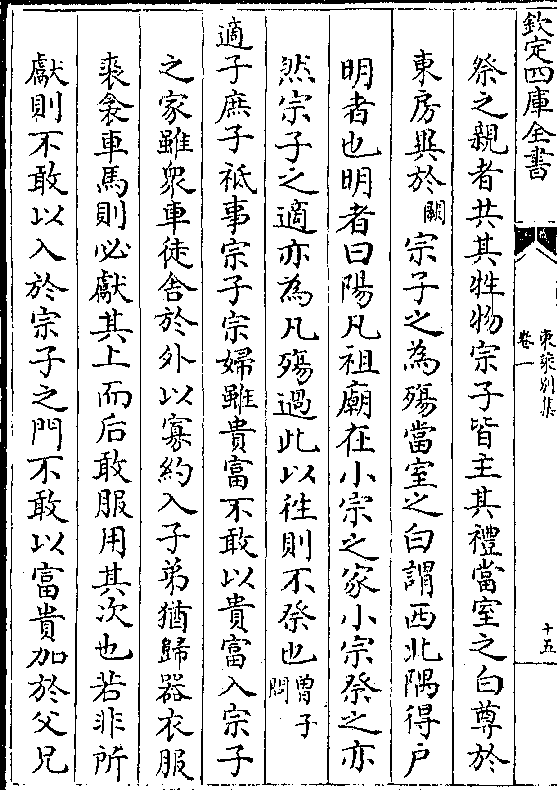 欽定四庫全書
東萊別集
卷一
十五
祭之親者共其牲物宗子皆主其禮當室之白尊於
東房異於闕宗子之為殤當室之白謂西北隅得戶
明者也明者曰陽凡祖廟在小宗之家小宗祭之亦
然宗子之適亦為凡殤過此以往則不祭也曾子問
適子庶子祗事宗子宗婦雖貴富不敢以貴富入宗子
之家雖衆車徒舍於外以寡約入子弟猶歸器衣服
裘衾車馬則必獻其上而后敢服用其次也若非所
獻則不敢以入於宗子之門不敢以富貴加於父兄